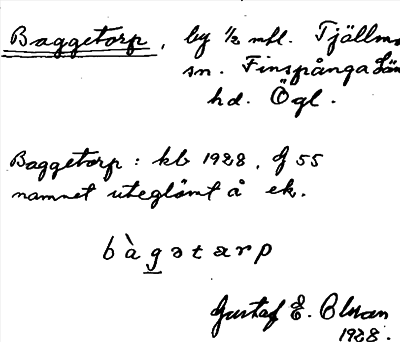 Baggetorp, by 1/2 mtl. Tjällmo
sn. Finspånga Län
hd. Ögl.
Baggetorp: kb 1928, f 55
namnet uteglömt å ek.
bàgətarp
Gustaf E. Olsson
1928.